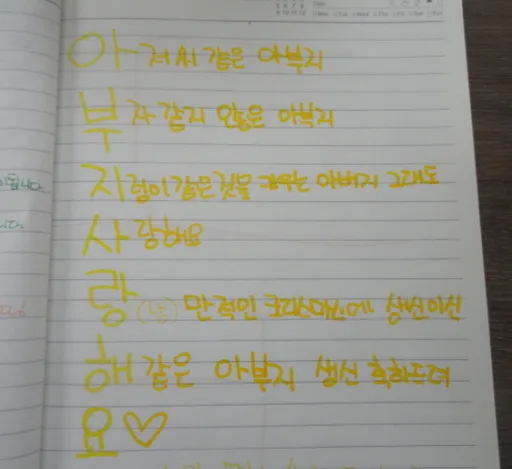 Date
아저씨 같은 아부지
부자 같지 않은 아부지
지렁이 같은것을 키우는 아버지 그래도
사랑해요
랑(낭)만적인 크리스마스에 생신이신
해같은 아부지 생신 축하드려
요♡